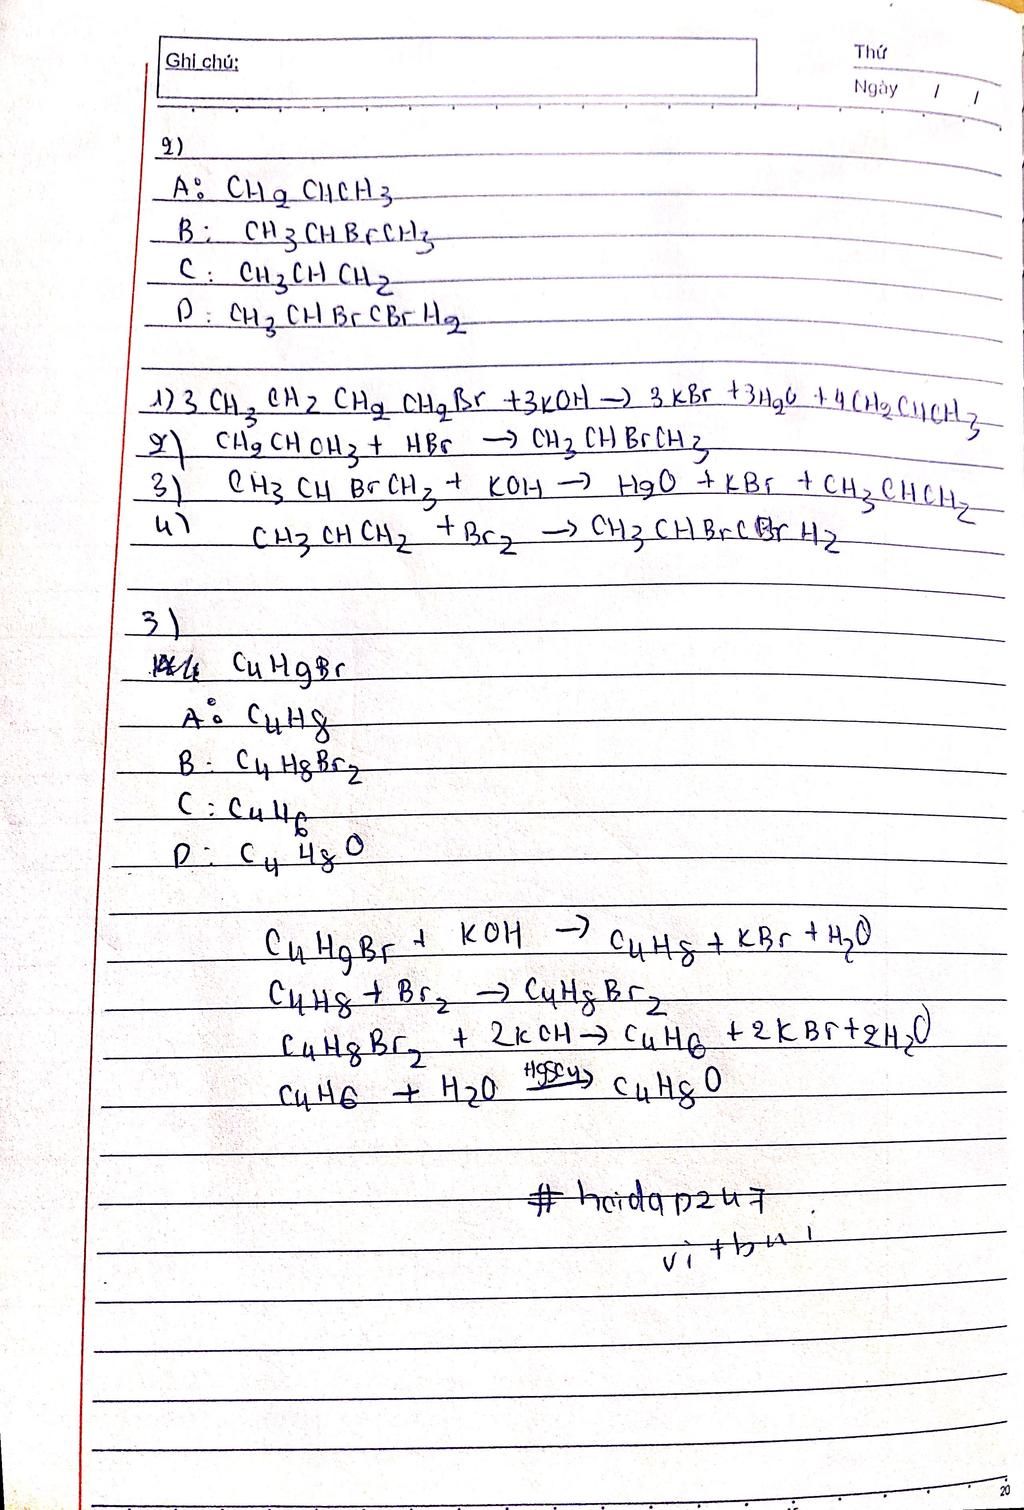 Ghi chú:
Thứ
Ngày / /
2)
A: CH2 CHCH3
B: CH3CHBrCH3
C: CH3CH CH2
D: CH3 CHBrCBrH2
1) 3 CH3 CH2 CH2 CH2Br + 3KOH → 3KBr + 3H2O + 4CH2CHCH3
2) CH2CHOH3 + HBr → CH3CHBrCH3
3) CH3 CH BrCH3 + KOH → H2O + KBr + CH3CHCH2
4) CH3CHCH2 + Br2 → CH3CHBrCBrH2
3)
C4H9Br
A: C4H8
B: C4H8Br2
C: C4H6
D: C4H8O
C4H9Br + KOH → C4H8 + KBr + H2O
C4H8 + Br2 → C4H8Br2
C4H8Br2 + 2KOH → C4H6 + 2KBr + 2H2O
C4H6 + H2O HgSO4→ C4H8O
# hoidap247
vitbui
20